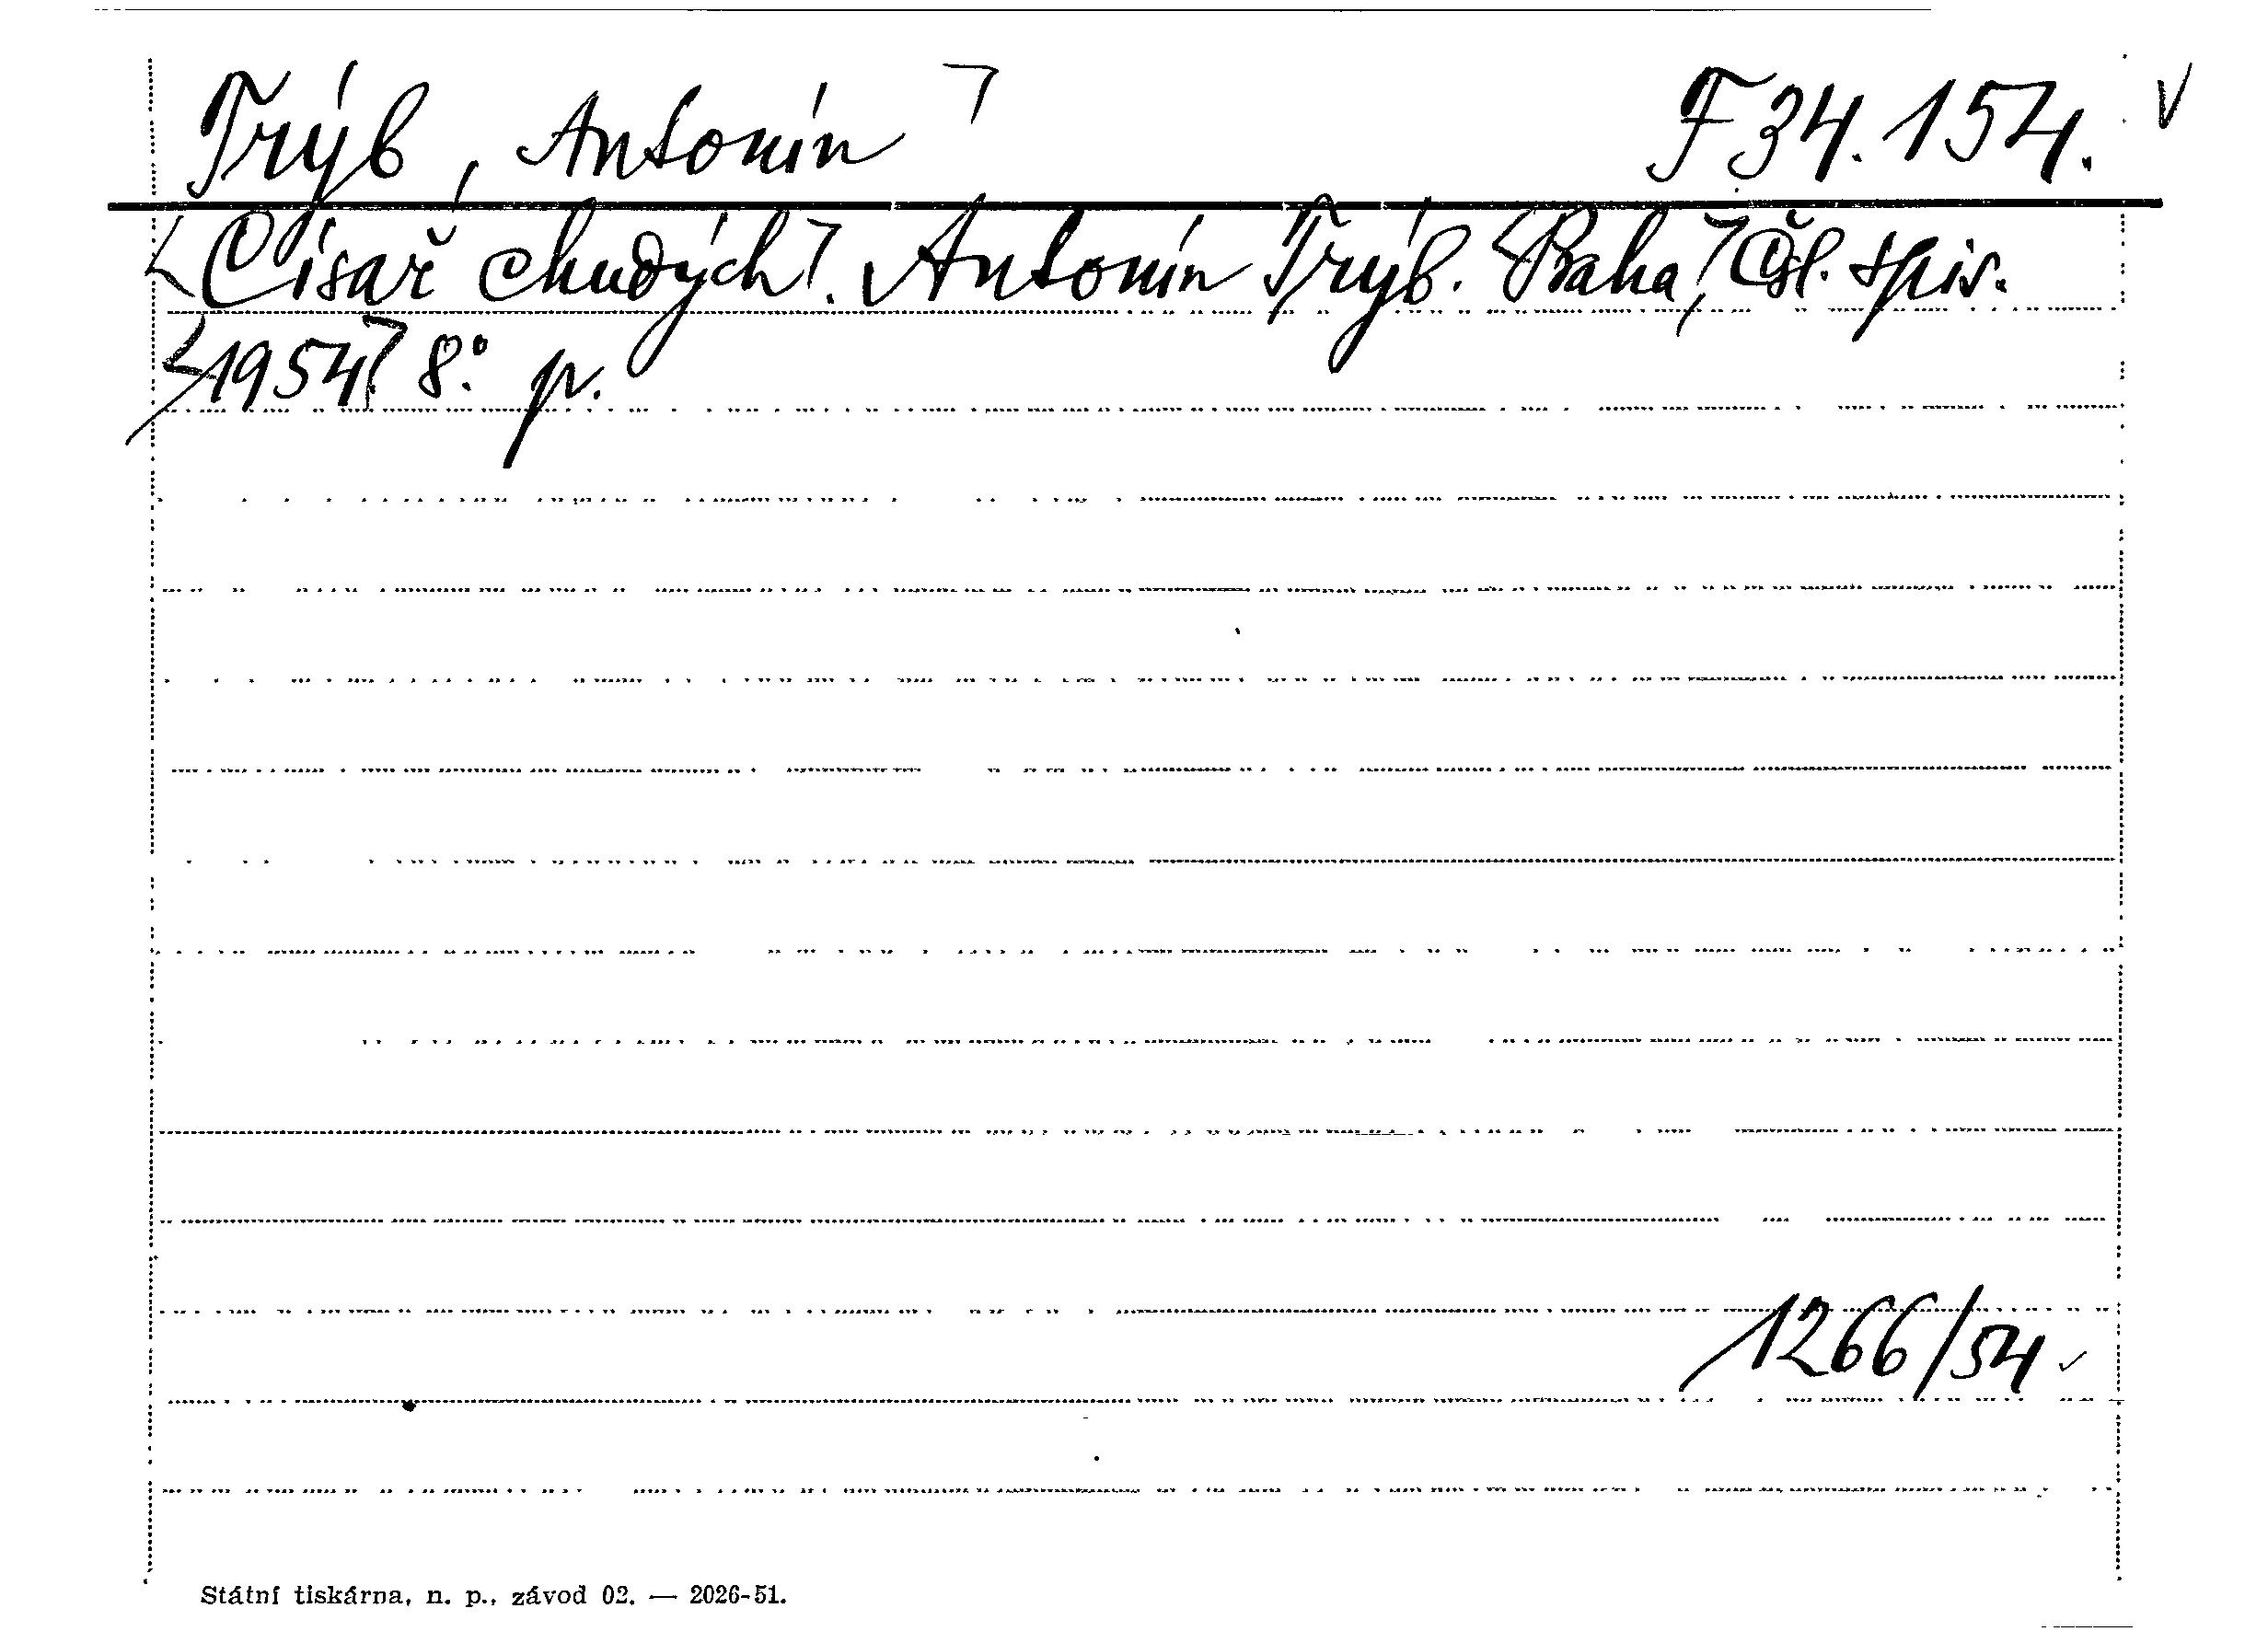 Trýb, Antonín F 34.154.
Císař chudých. Antonín Trýb. Praha, Čsl. spis.
1954. 8°. p.
1266/54
Státní tiskárna, n. p., závod 02. — 2026-51.